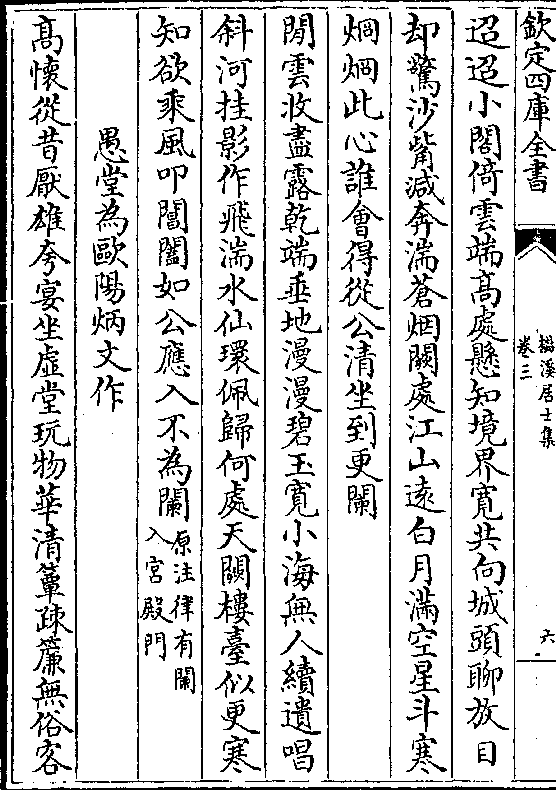 欽定四庫全書
檆溪居士集
卷三
六
迢迢小閣倚雲端髙處懸知境界寛共向城頭聊放目
却驚沙觜減奔湍蒼烟闕處江山遠白月滿空星斗寒
烱烱此心誰會得從公清坐到更闌
閒雲收盡露乾端垂地漫漫碧玉寛小海無人續遺唱
斜河挂影作飛湍水仙環佩歸何處天闕樓臺似更寒
知欲乘風叩閶闔如公應入不為闌
原注律有闌
入宮殿門
愚堂為歐陽炳文作
髙懷從昔厭雄夸宴坐虛堂玩物華清簟疎簾無俗客